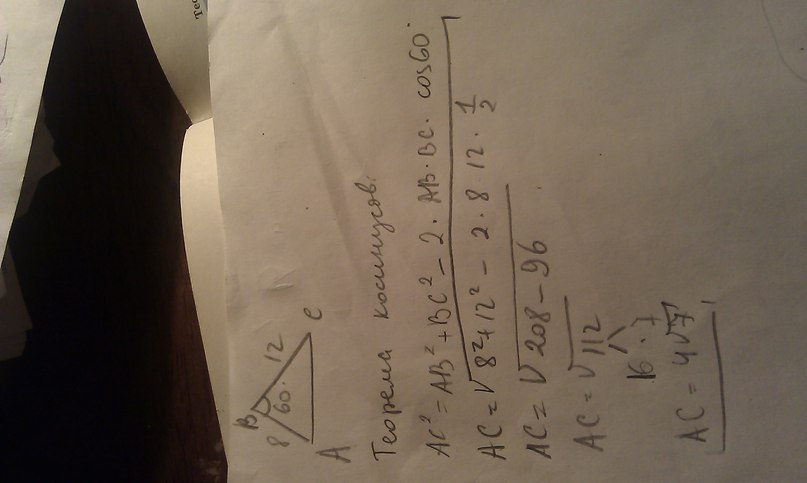 B
8 60° 12
A C
Теорема косинусов:
AC² = AB² + BC² - 2 · AB · BC · cos60°
AC = √8² + 12² - 2 · 8 12 · 1/2
AC = √208 - 96
AC = √112
16 · 7
AC = 4√7